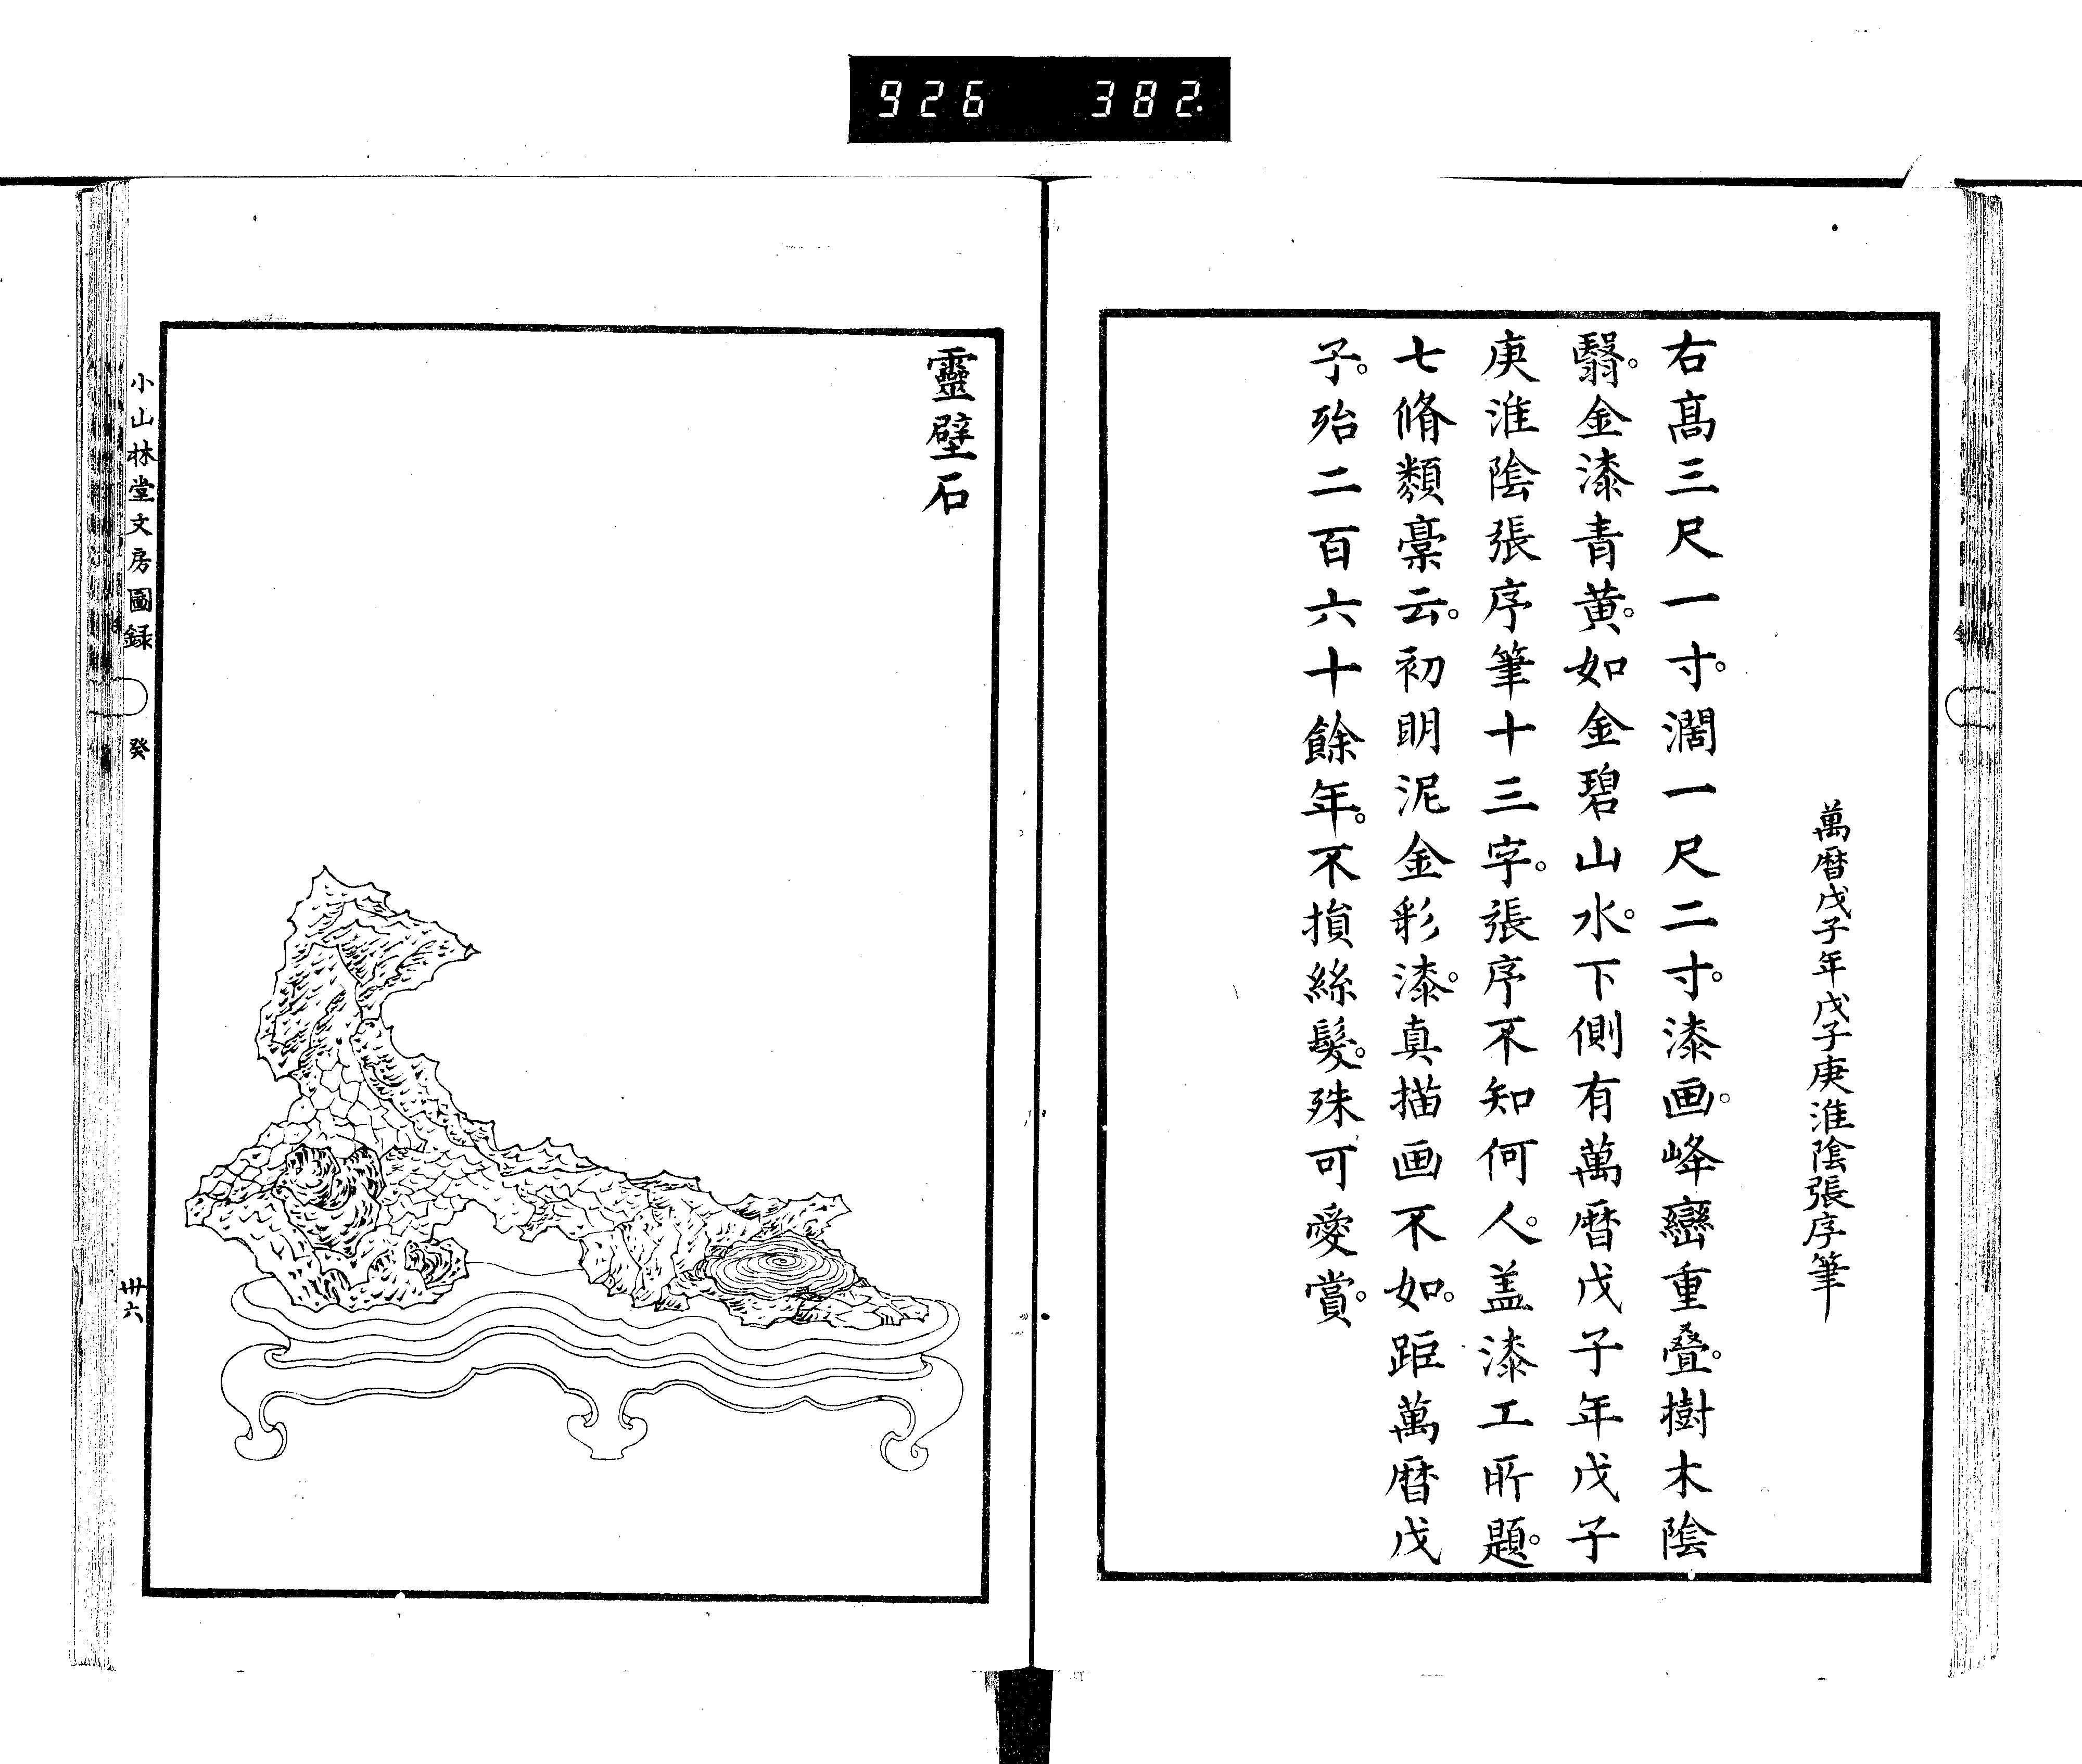 926 382
萬曆戊子年戊子庚淮陰張序筆
右高三尺一寸。濶一尺二寸。漆画。峰巒重疊。樹木陰
翳。金漆青黄。如金碧山水。下側有萬曆戊子年戊子
庚淮陰張序筆十三字。張序不知何人。盖漆工所題。
七脩類稾云。初明泥金彩漆。真描画不如。距萬曆戊
子。殆二百六十餘年。不損絲髮。殊可愛賞。
靈壁石
小山林堂文房圖録 癸 卅六